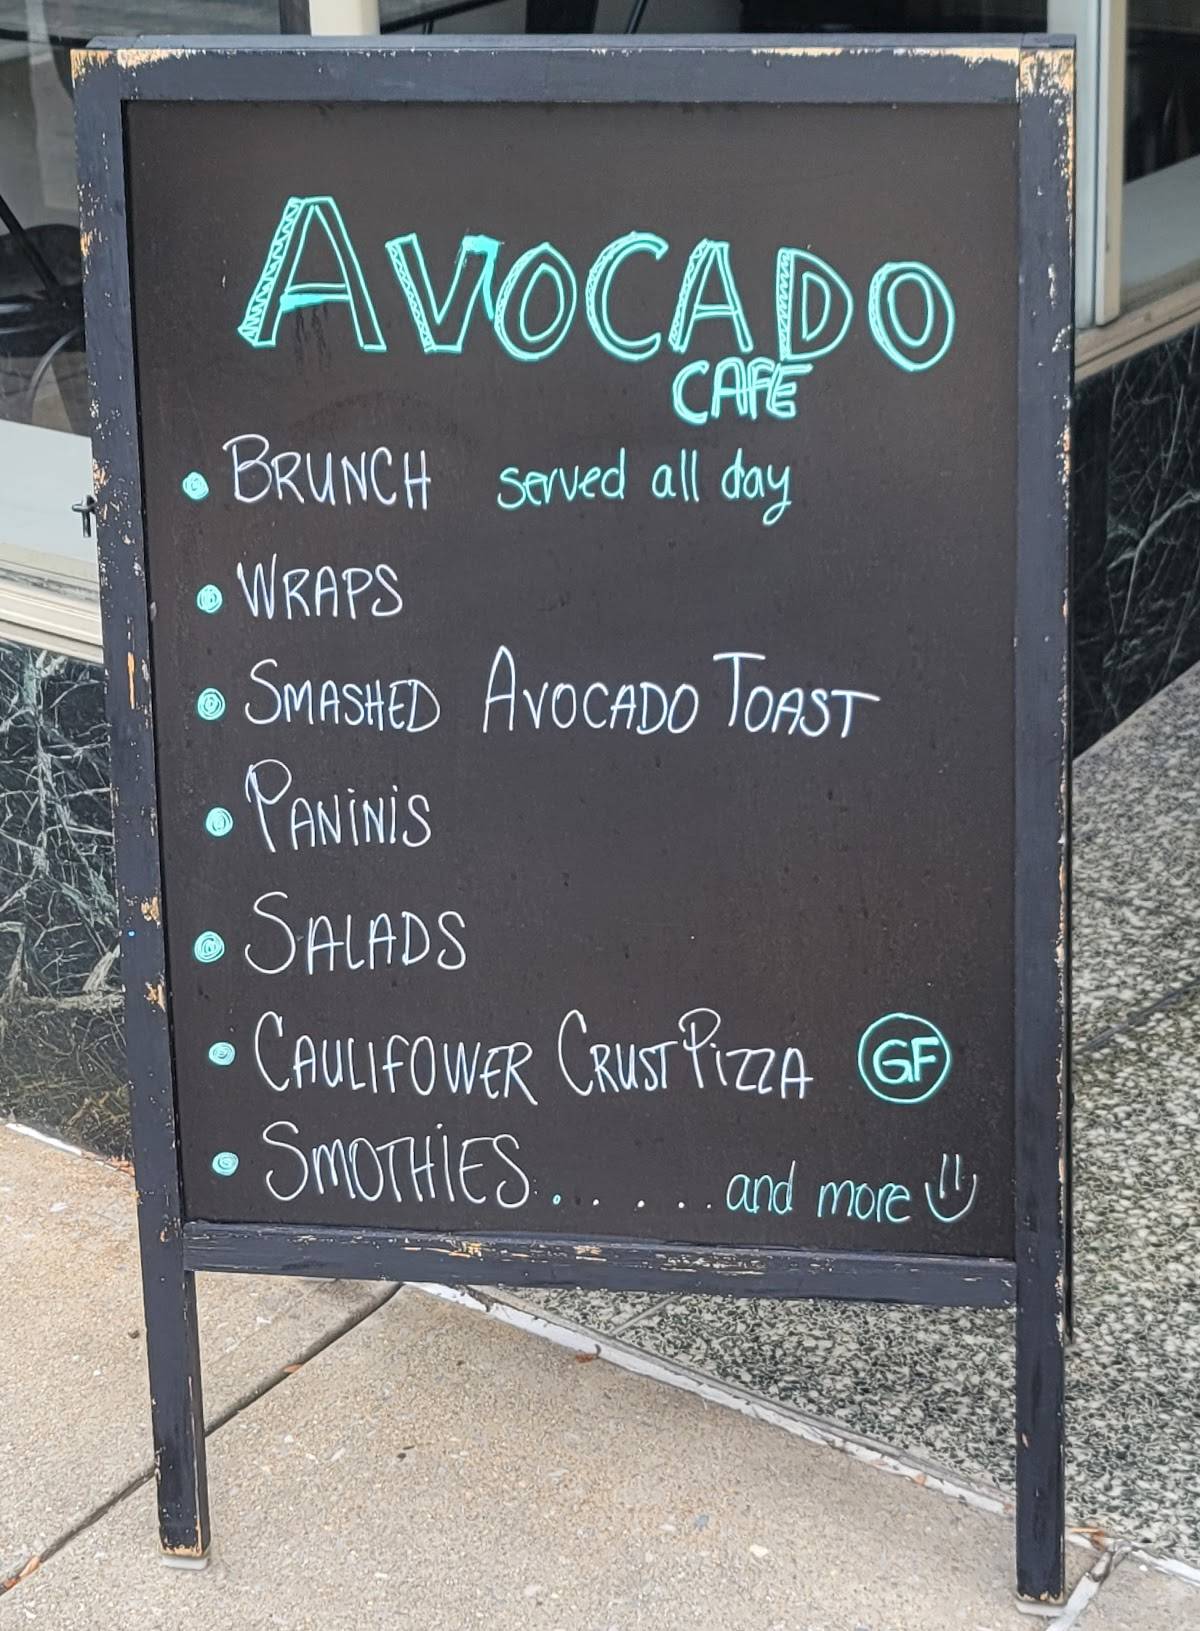 AVOCADO
CAFE
BRUNCH served all day
WRAPS
SMASHED AVOCADO TOAST
PANiNiS
SALADS
CAULIFOWER CRUST PiZZA GF
SMOTHiES. . . . . . and more